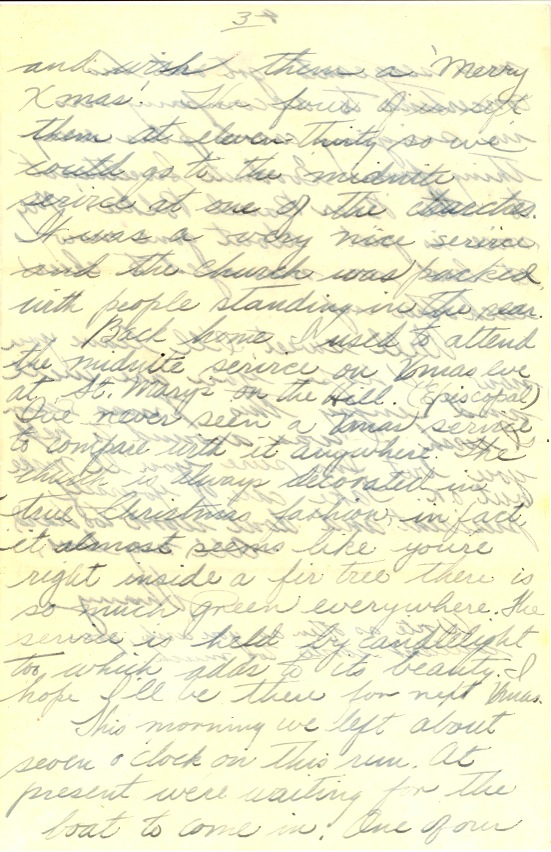 3
and wish them a 'Merry
Xmas'. The four of us left
them at eleven thirty so we
could go to the midnite
service at one of the churches.
It was a very nice service
and the church was packed
with people standing in the rear.
Back home I used to attend
the midnite service on Xmas eve
at St. Mary's on the Hill. (Episcopal)
I've never seen a Xmas service
to compare with it anywhere. The
church is always decorated in
true Christmas fashion, in fact
it almost seems like you're
right inside a fir tree there is
so much green everywhere. The
service is held by candlelight
too which adds to its beauty. I
hope I'll be there for next Xmas.
This morning we left about
seven o'clock on this run. At
present we're waiting for the
boat to come in. One of our